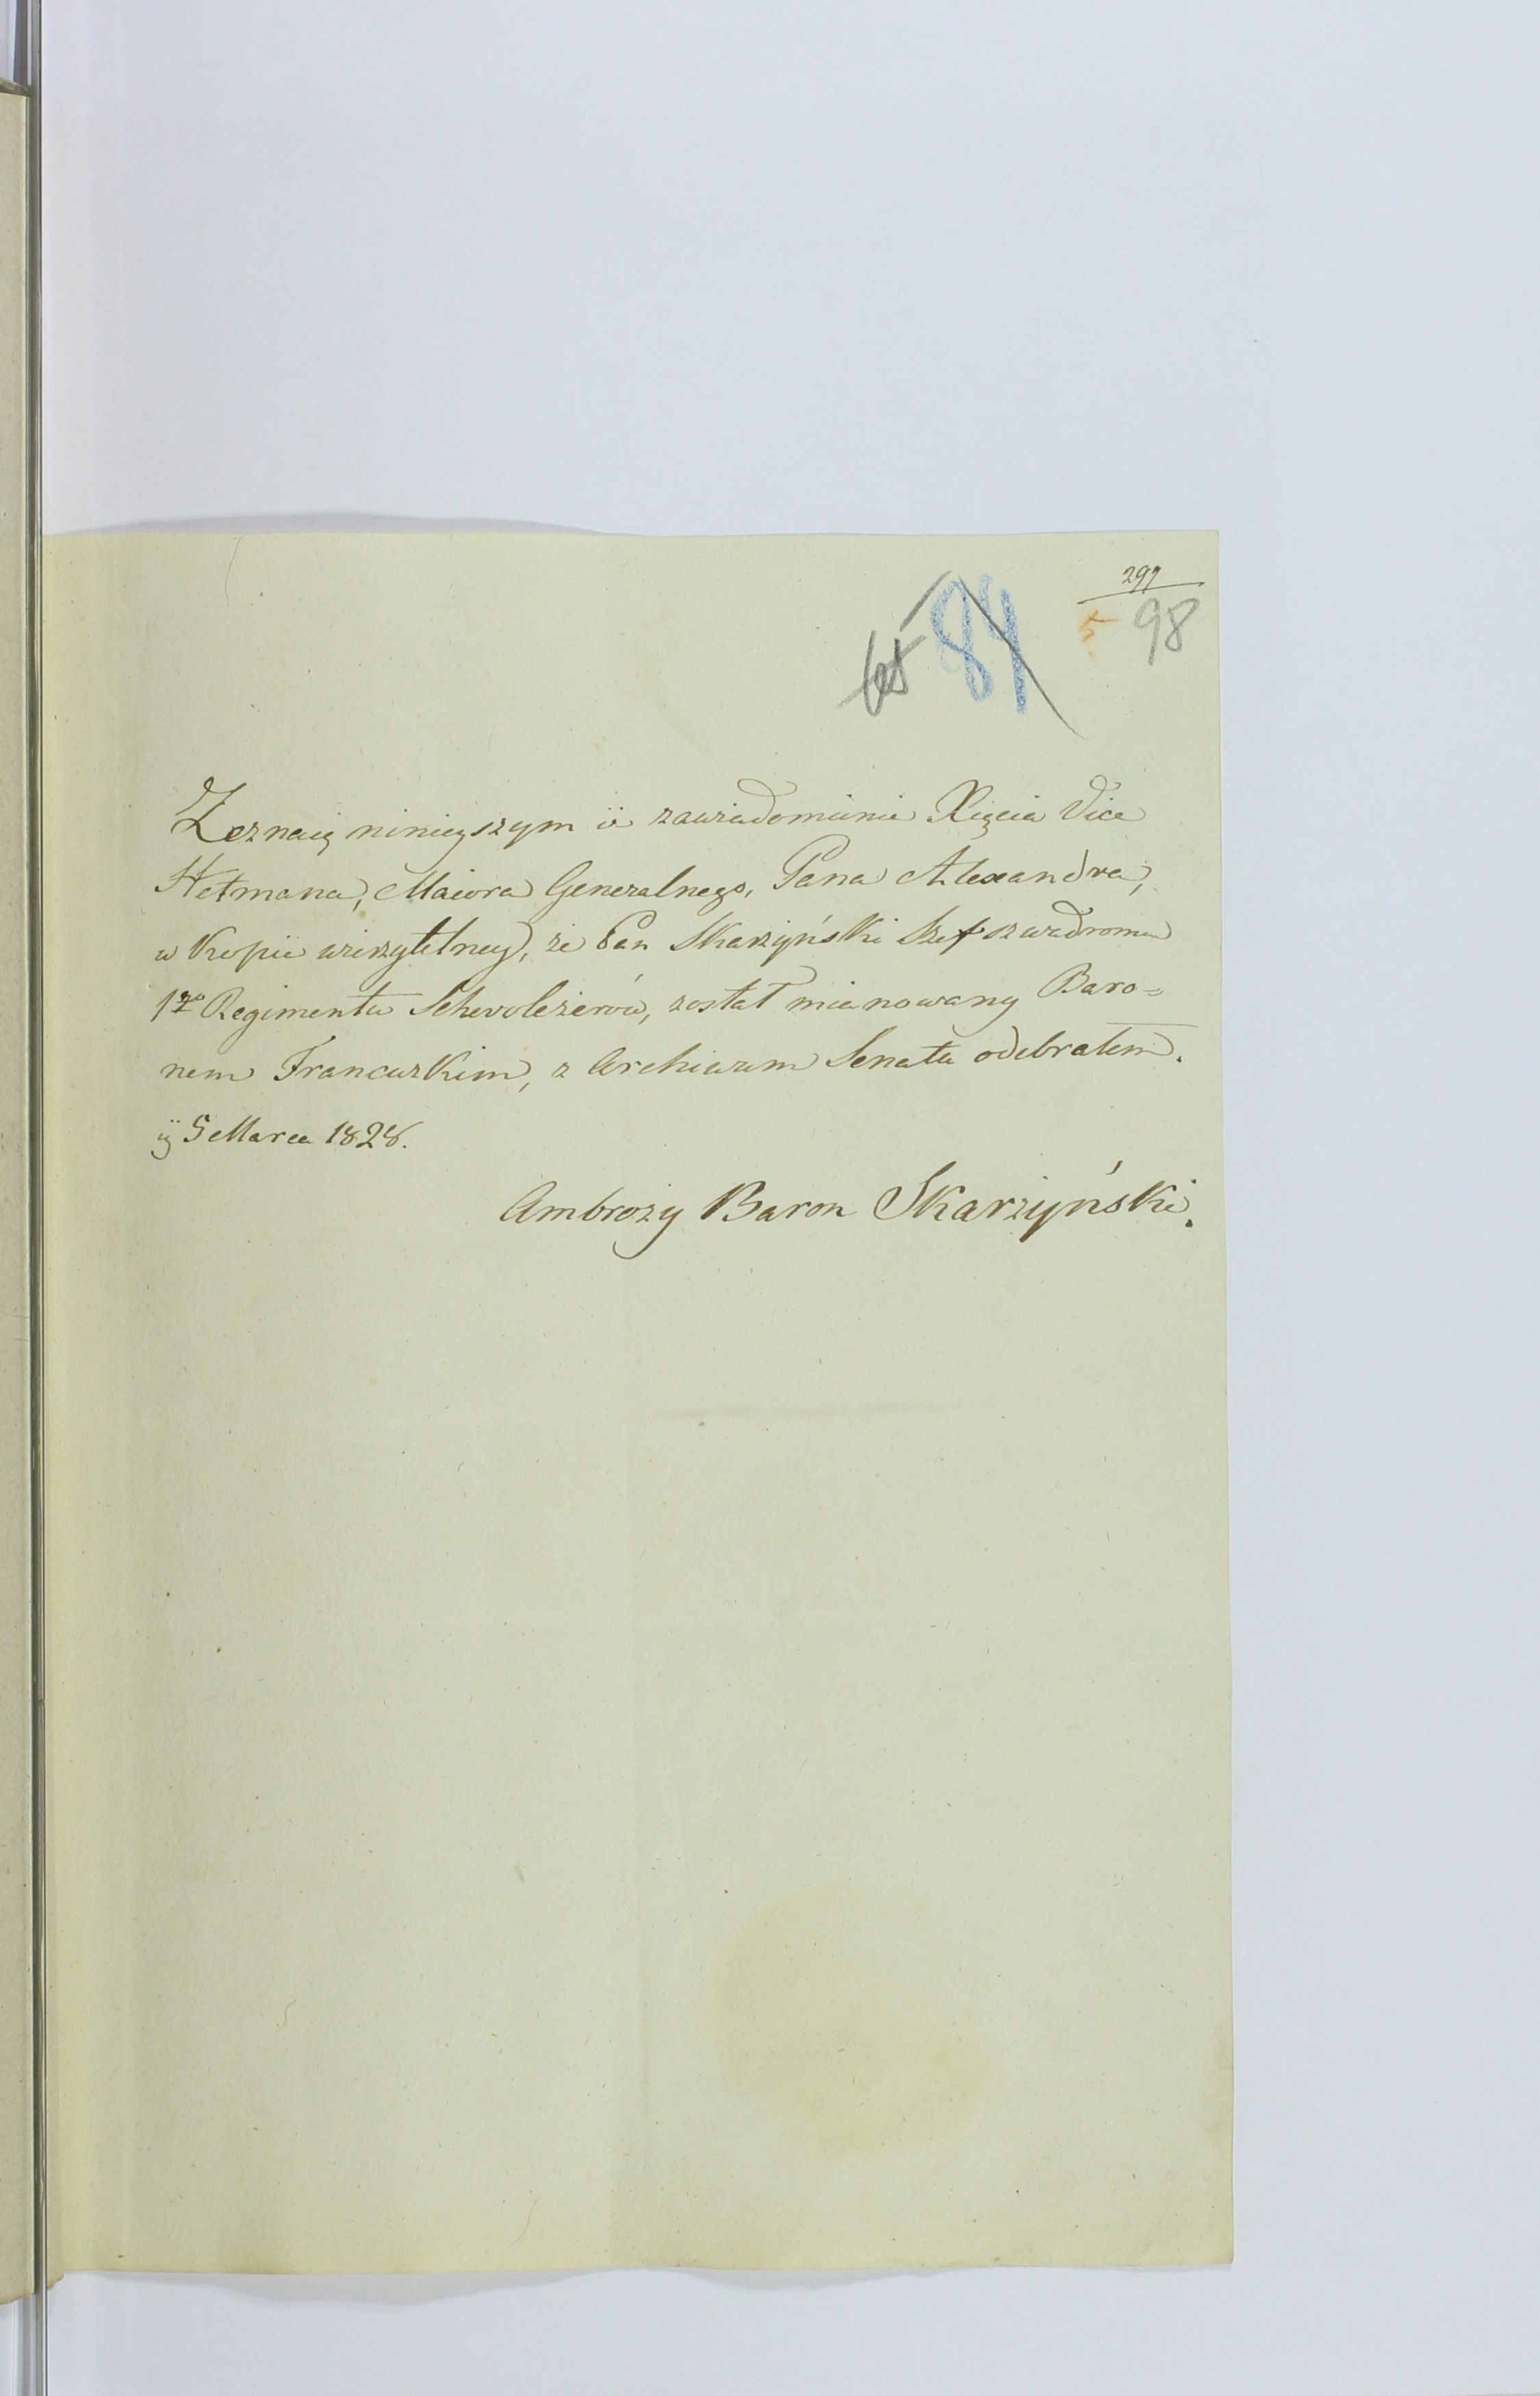 297
98
65 84
Zeznaię ninieyszym iż zawiadomienie Xięcia Vice
Hetmana, Maiora Generalnego, Pana Alexandra,
w kopii wierzytelney, że Pan Skarzyński Szef szwadronu
1go Regimentu Schevoleżerów, został mianowany Baro=
nem Francuzkim, z Archiwum Senatu odebrałem.
5 Marca 1828.
Ambroży Baron Skarżyński.